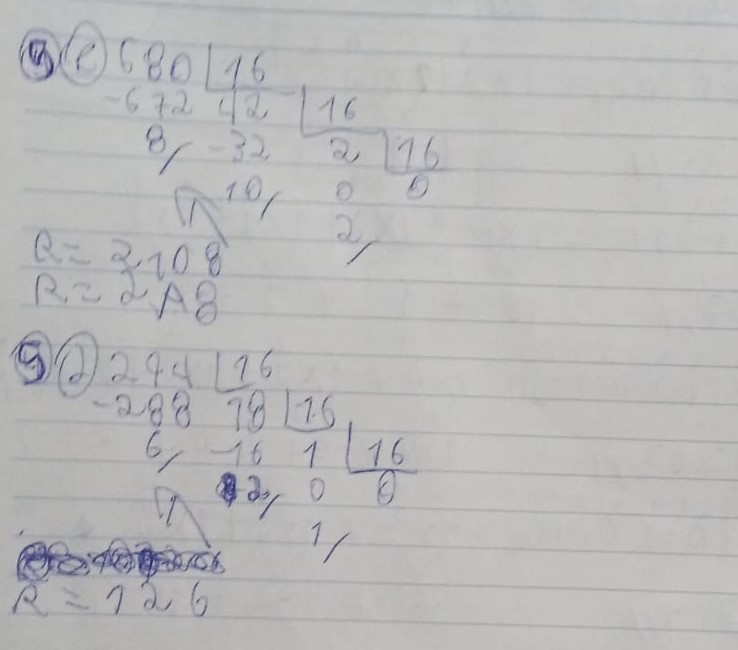 c 680 16
-672 42 16
8, -32 2 16
10, 0 0
2,
R = 2 10 8
R = 2 A 8
5 d 294 16
-288 18 16
6, -16 1 16
2, 0 0
1,
R = 1 2 6